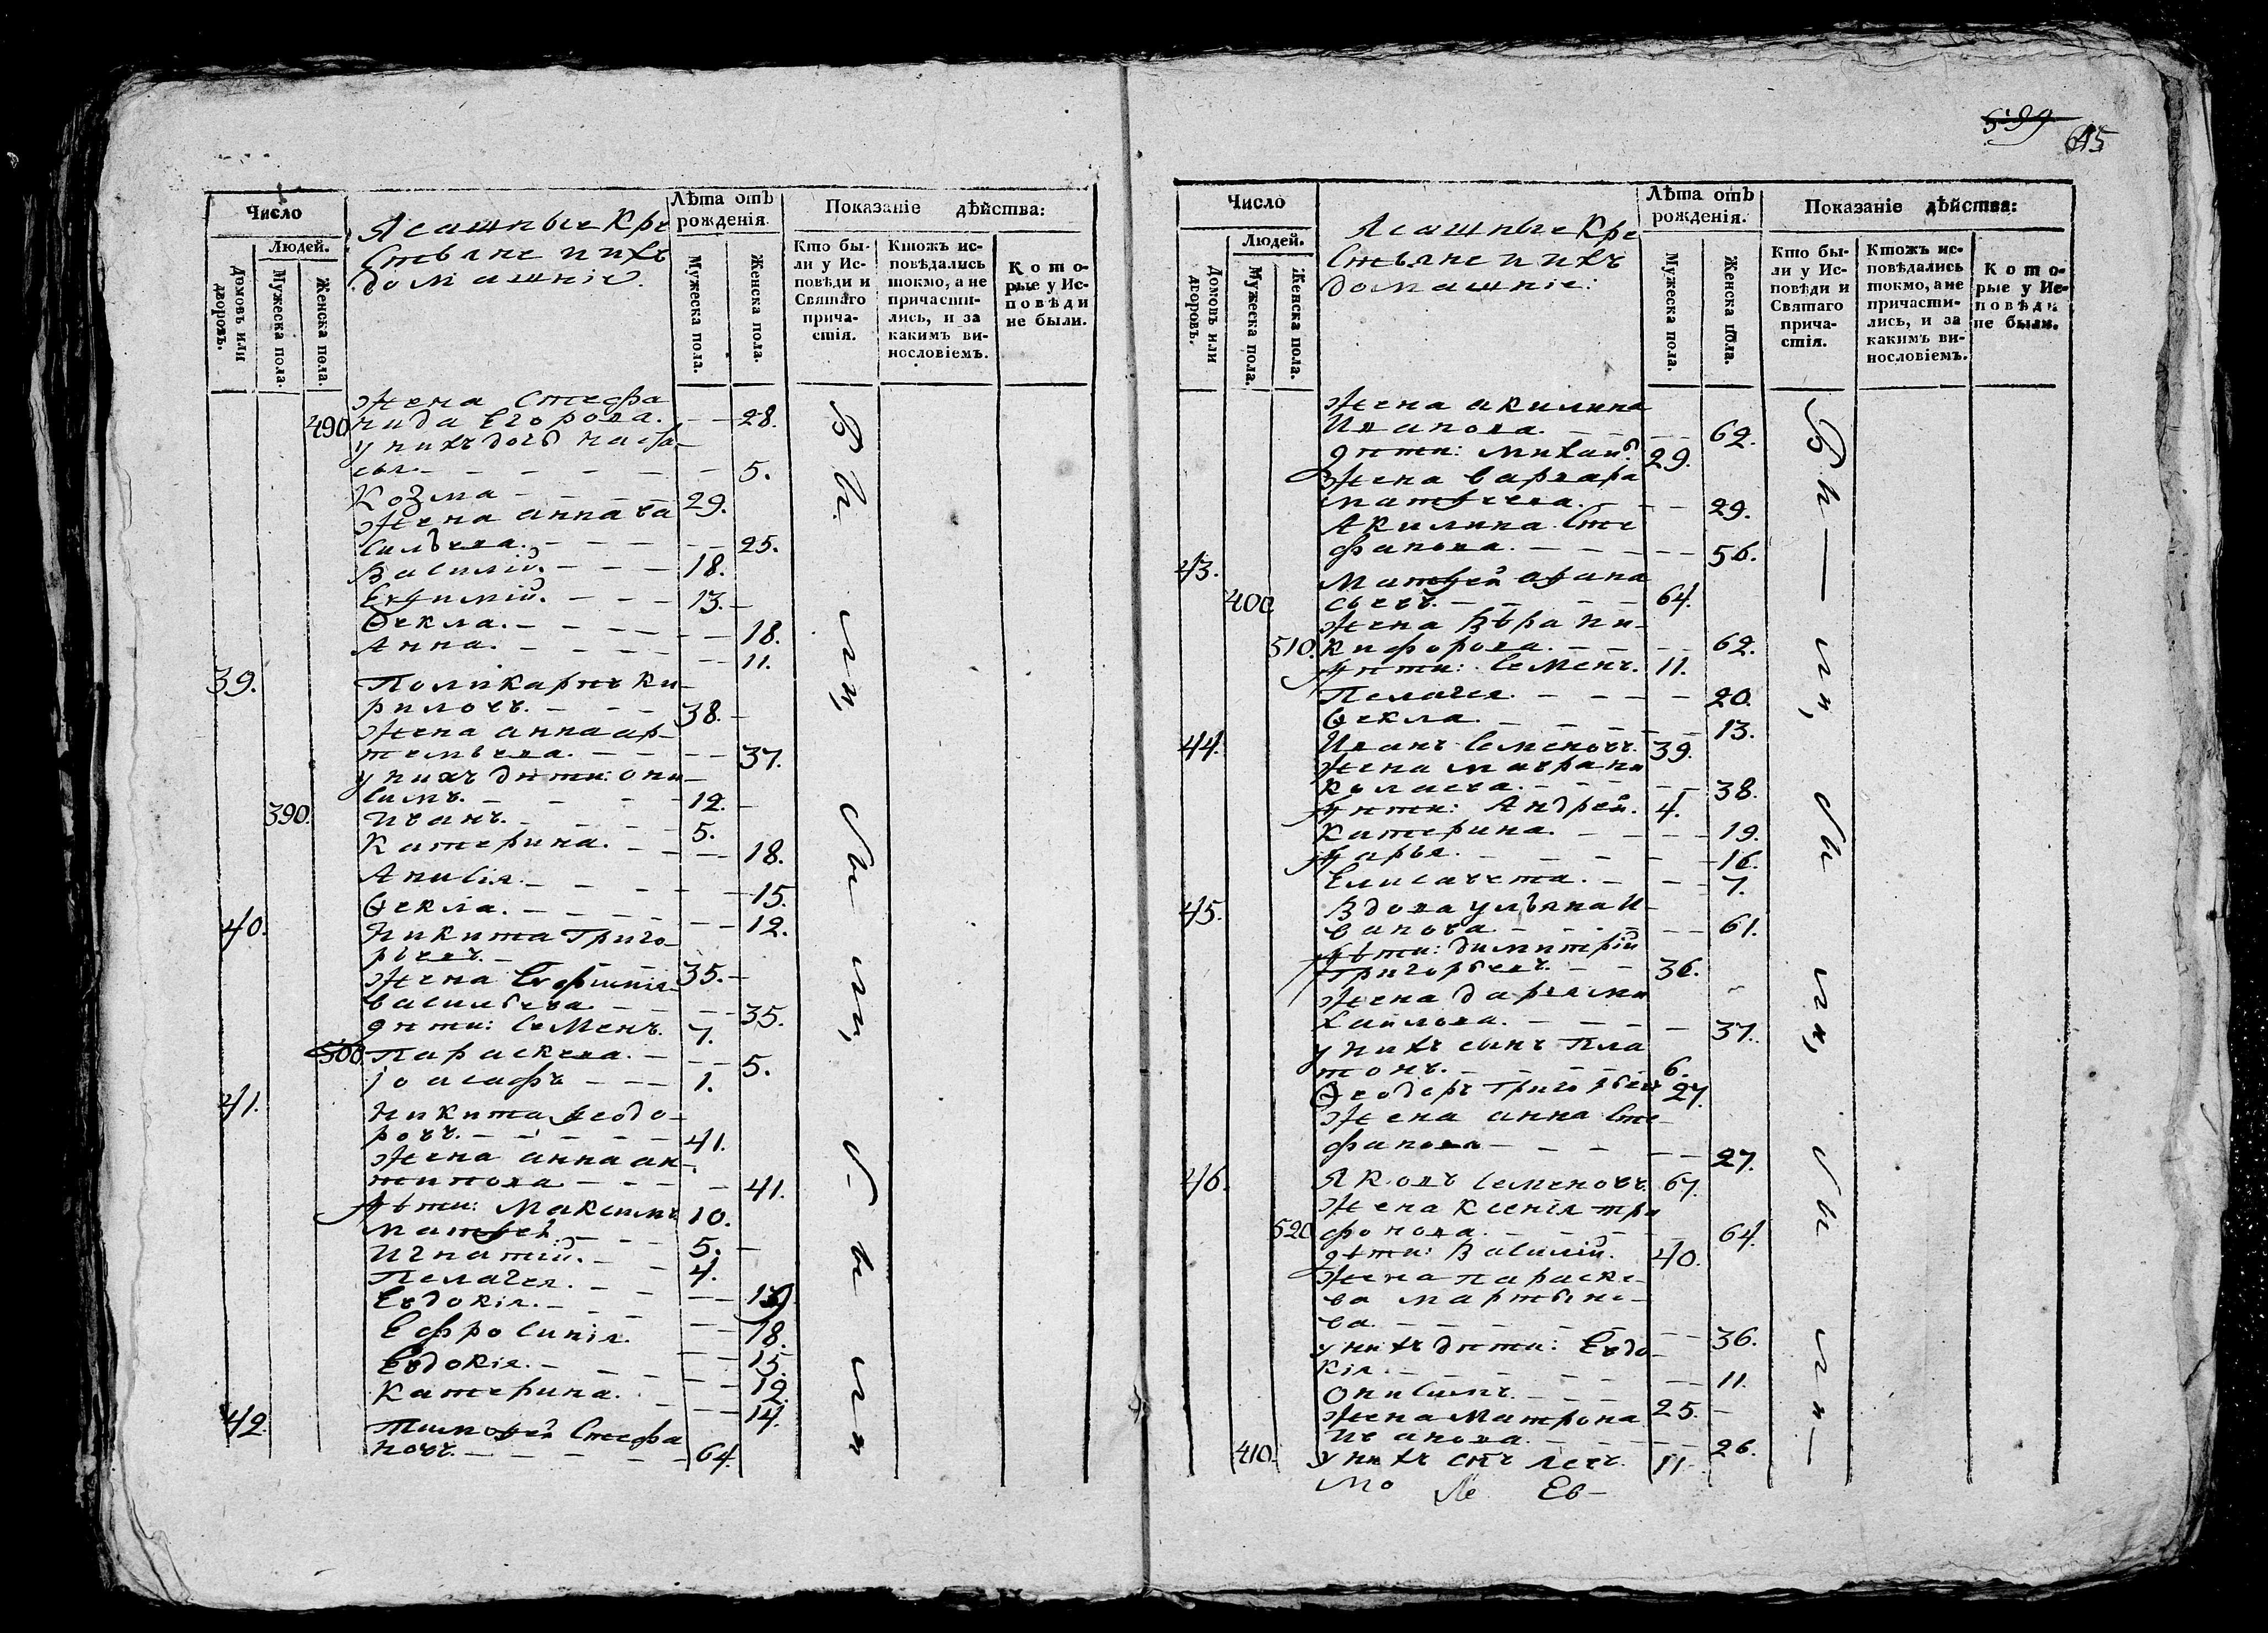 599
645
Число
Ясашные Кре
стьяне и ихъ
домашніе.
Лѣта отъ
рожденія.
Показаніе дѣйства:
Домовъ или
дворовъ.
Людей.
Мужеска пола.
Женска пола.
Мужеска пола.
Женска пола.
Кто бы-
ли у Ис-
повѣди и
Святаго
прича-
стія.
Ктожъ ис-
повѣдались
токмо, а не
причасти-
лись, и за
какимъ ви-
нословіемъ.
Кото-
рые у Ис-
повѣди
не были.
Жена Стефа
490 нида Егорова. — — 28.
у нихъ дочь Наста-
сья. — — — — — — 5.
Козма — — — 29.
Жена Анна Ва
сильева. — — — — — 25.
Василій. — — — 18.
Евфимій. — — — 13. —
Ѳекла. — — — — — — 18.
Анна. — — — — — — 11.
39. Поликарпъ Ки-
риловъ. — — — 38. —
Жена Анна Ар-
темьева. — — — — 37.
у нихъ дѣти: Они-
симъ. — — — — 12. —
390. Иванъ. — — — — 5.
Катерина. — — — — 18.
Анисія. — — — — — — 15.
Ѳекла. — — — — — — 12.
40. Никита Григо-
рьевъ. — — — 35. —
Жена Евфимія
Васильева — — — — 35.
дѣти: Семенъ. 7.
500. Параскева. — — — 5.
Іоасафъ — — — 1.
41. Никита Ѳеодо-
ровъ. — — — — — 41.
Жена Анна Ан-
типова — — — — 41.
Дѣти: Максимъ 10.
Матфей. — — — 5. —
Игнатій. — — 4.
Пелагея. — — —
Евдокія. — — — — — 18.
Ефросинія. — — 15.
Евдокія. — — — — — 12.
Катерина. — — — 14.
42. Тимофей Стефа
новъ. — — — — — 64.
Бы — ли, бы — ли, бы — ли
Число
Ясашные Кре
стьяне и ихъ
домашніе:
Лѣта отъ
рожденія.
Показаніе дѣйства:
Домовъ или
дворовъ.
Людей.
Мужеска пола.
Женска пола.
Мужеска пола.
Женска пола.
Кто бы-
ли у Ис-
повѣди и
Святаго
прича-
стія.
Ктожъ ис-
повѣдались
токмо, а не
причасти-
лись, и за
какимъ ви-
нословіемъ.
Кото-
рые у Ис-
повѣди
не были.
Жена Акилина
Иванова. — — — — 62.
дѣти: Михаилъ 29.
Жена Варвара
Матфеева. — — — 29.
Акилина Сте
фанова. — — — — — 56.
43. Матфей Афана
400 сьевъ. — — — — 64.
Жена Вѣра Ни-
510. кифорова. — — — — 62.
Дѣти: Семенъ. 11.
Пелагея. — — — — 20.
Ѳекла. — — — — — 13.
44. Иванъ Семеновъ. 39.
Жена Мавра Ни
колаева. — — — — 38.
Дѣти: Андрей. 4.
Катерина. — — — — 19.
Дарья. — — — — — 16.
Елисавета. — — — 7.
45. Вдова Ульяна И-
ванова. — — — — — 61.
Дѣти: Димитрій
Григорьевъ. — — 36.
Жена Дарья Ми
хайлова. — — — — 37.
у нихъ сынъ Пла
тонъ. — — — — — 6.
Ѳеодоръ Григорьевъ 27.
Жена Анна Сте-
фанова — — — — — 27.
46. Яковъ Семеновъ. 67.
Жена Ксенія Три
520 фонова. — — — — — 64.
дѣти: Василій. 40.
Жена Параске-
ва Мартыно-
ва. — — — — — — — 36.
у нихъ дѣти: Евдо-
кія. — — — — — — — 11.
Онисимъ. — — — 25. —
Жена Матрона
Иванова. — — — — — 26.
410. у нихъ сынъ Левъ. 11.
Бы — ли, бы — ли, бы — ли —